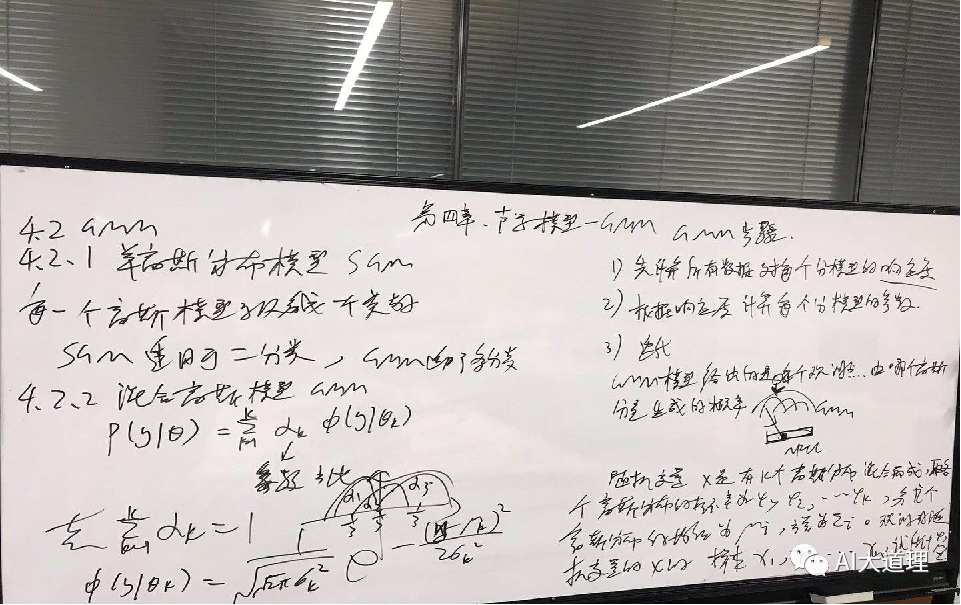 第四章、声学模型-GMM GMM步骤.
4.2 GMM
4.2.1 单高斯分布模型 SGM
每一个高斯模型可以看成一个类别
SGM适用于二分类，GMM适用于多分类
4.2.2 混合高斯模型 GMM
P(y|θ) = Σ αk φ(y|θk)
系数 占比
α1 α3
1/3 1/3 1/3
Σ αk = 1
φ(y|θk) = 1/√(2πσk²) e
2σk²
1) 先计算所有数据对每个分模型的响应度
2) 根据响应度计算每个分模型的参数.
3) 迭代
GMM模型给出的是每个观测点.由哪个高斯
分量生成的概率
GMM
随机变量 X是有K个高斯分布混合而成，取各
个高斯分布的概率为φ1, φ2, ... φk，第i个
高斯分布的均值为μi，方差为Σi。观测到随
机变量的X的 样本 x1,
AI大道理